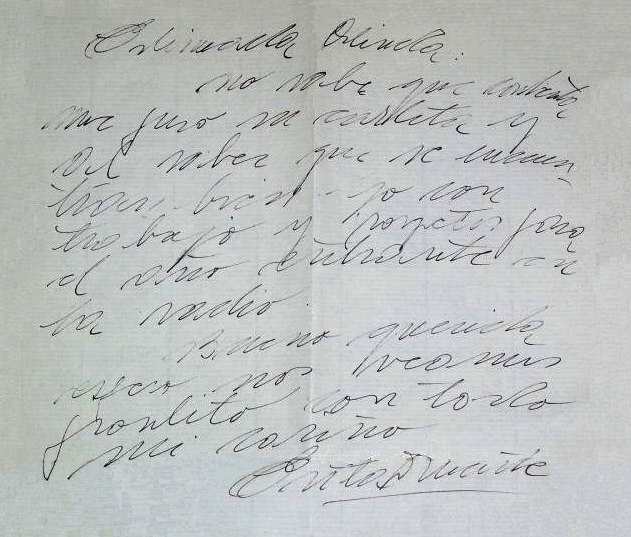 Estimada Olinda:
no sabe que contenta
me puso su cartita y
el saber que se encuen-
tran bien - yo con
trabajo y proyectos para
el año entrante en
la radio.
Bueno querida
espero nos veamos
prontito con todo
mi cariño
Evita Duarte